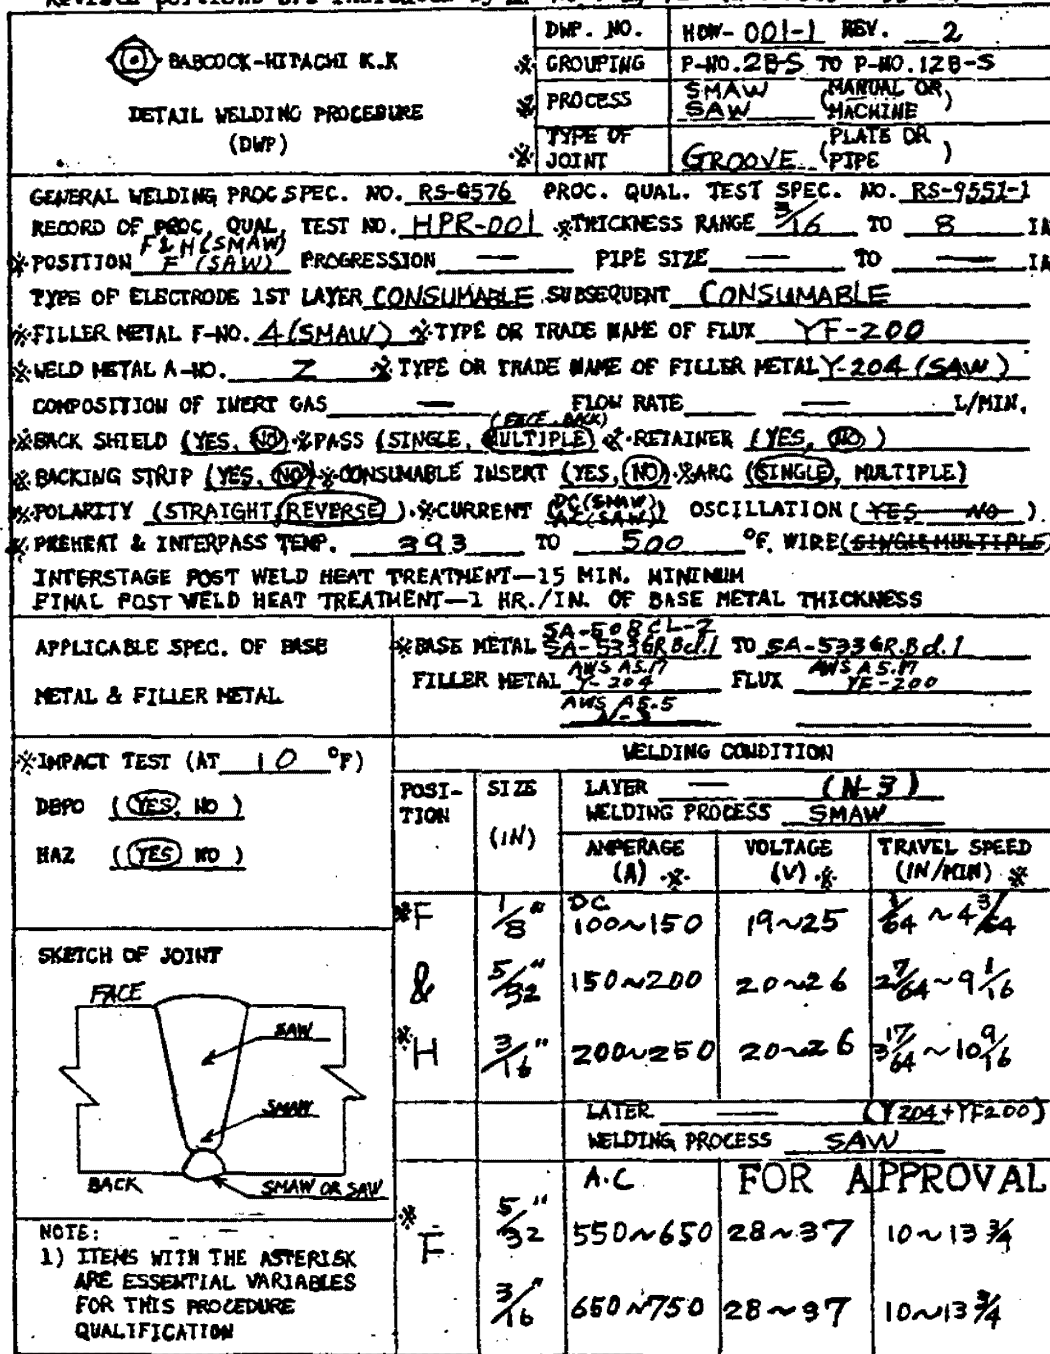 BABCOCK-HITACHI K.K
DETAIL WELDING PROCEDURE
(DWP)
DWP. NO. HOW- 001-1 REV. 2
※ GROUPING P-NO.2B-S TO P-NO.12B-S
※ PROCESS SMAW SAW (MANUAL OR, MACHINE)
※ TYPE OF JOINT GROOVE (PLATE OR PIPE)
GENERAL WELDING PROC.SPEC. NO. RS-6576 PROC. QUAL. TEST SPEC. NO. RS-9551-1
RECORD OF PROC, QUAL, TEST NO. HPR-001 ※THICKNESS RANGE 3/16 TO 8 IN
※POSITION F & H (SMAW) F (SAW) PROGRESSION — PIPE SIZE — TO — IN
TYPE OF ELECTRODE 1ST LAYER CONSUMABLE SUBSEQUENT CONSUMABLE
※FILLER METAL F-NO. 4(SMAW) ※TYPE OR TRADE NAME OF FLUX YF-200
※WELD METAL A-NO. 2 ※TYPE OR TRADE NAME OF FILLER METAL Y-204 (SAW)
COMPOSITION OF INERT GAS — FLOW RATE — L/MIN.
(FACE. BACK)
※BACK SHIELD (YES, NO) ※PASS (SINGLE, MULTIPLE) ※RETAINER (YES, NO)
※BACKING STRIP (YES, NO) ※CONSUMABLE INSERT (YES, NO) ※ARC (SINGLE, MULTIPLE)
※POLARITY (STRAIGHT, REVERSE) ※CURRENT DC(SMAW) AC(SAW) OSCILLATION (YES NO)
※PREHEAT & INTERPASS TEMP. 393 TO 500 °F. WIRE(SINGLE MULTIPLE)
INTERSTAGE POST WELD HEAT TREATMENT—15 MIN. MINIMUM
FINAL POST WELD HEAT TREATMENT—1 HR./IN. OF BASE METAL THICKNESS
APPLICABLE SPEC. OF BASE
METAL & FILLER METAL
SA-508 CL-2
※BASE METAL SA-533GR.Bcl.1 TO SA-533GR.Bcl.1
FILLER METAL AWS A5.17 Y-204 FLUX AWS A5.17 YF-200
AWS A5.5
※IMPACT TEST (AT 10 °F)
DEPO (YES, NO )
HAZ (YES NO )
SKETCH OF JOINT
FACE
SAW
SMAW
BACK
SMAW OR SAW
NOTE:
1) ITEMS WITH THE ASTERISK
ARE ESSENTIAL VARIABLES
FOR THIS PROCEDURE
QUALIFICATION
WELDING CONDITION
POSI-TION SIZE (IN)
LAYER — (N-3)
WELDING PROCESS SMAW
AMPERAGE (A) ※ VOLTAGE (V) ※ TRAVEL SPEED (IN/MIN) ※
※F 1/8" DC 100~150 19~25 1/64 ~ 4 3/64
& 5/32" 150~200 20~26 2 7/64 ~ 9 1/16
※H 3/16" 200~250 20~26 3 17/64 ~ 10 9/16
LAYER — (Y204+YF200)
WELDING PROCESS SAW
A.C FOR APPROVAL
※F 5/32" 550~650 28~37 10~13 3/4
3/16" 650~750 28~37 10~13 3/4